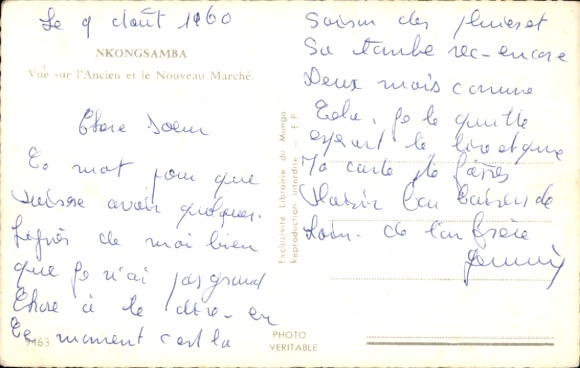 Le 9 août 1960
NKONGSAMBA
Vue sur l'Ancien et le Nouveau Marché.
Chere Soeur
Ce mot pour que
puisse avoir quelques.
de moi bien
que je n'ai pas grand
Chose à te dire. en
ce moment c'est la
9463
Exclusivité Librairie du Mungo
Reproduction interdite - E. F.
PHOTO
VERITABLE
Saison des pluies et
Sa tombe rec-encore
Deux mois comme
Cela. je te quitte
te lire et que
Ta carte te
Plaisir bon baisers de
Loin. de ton frère